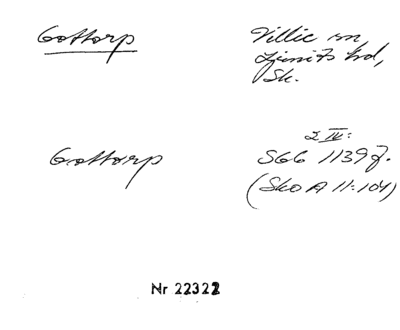 Gottorp
Villie sn,
Ljunits hd,
Sk.
2 IV:
Gottorp
SGG 1139 f.
(Sko A 11:104)
Nr 22322